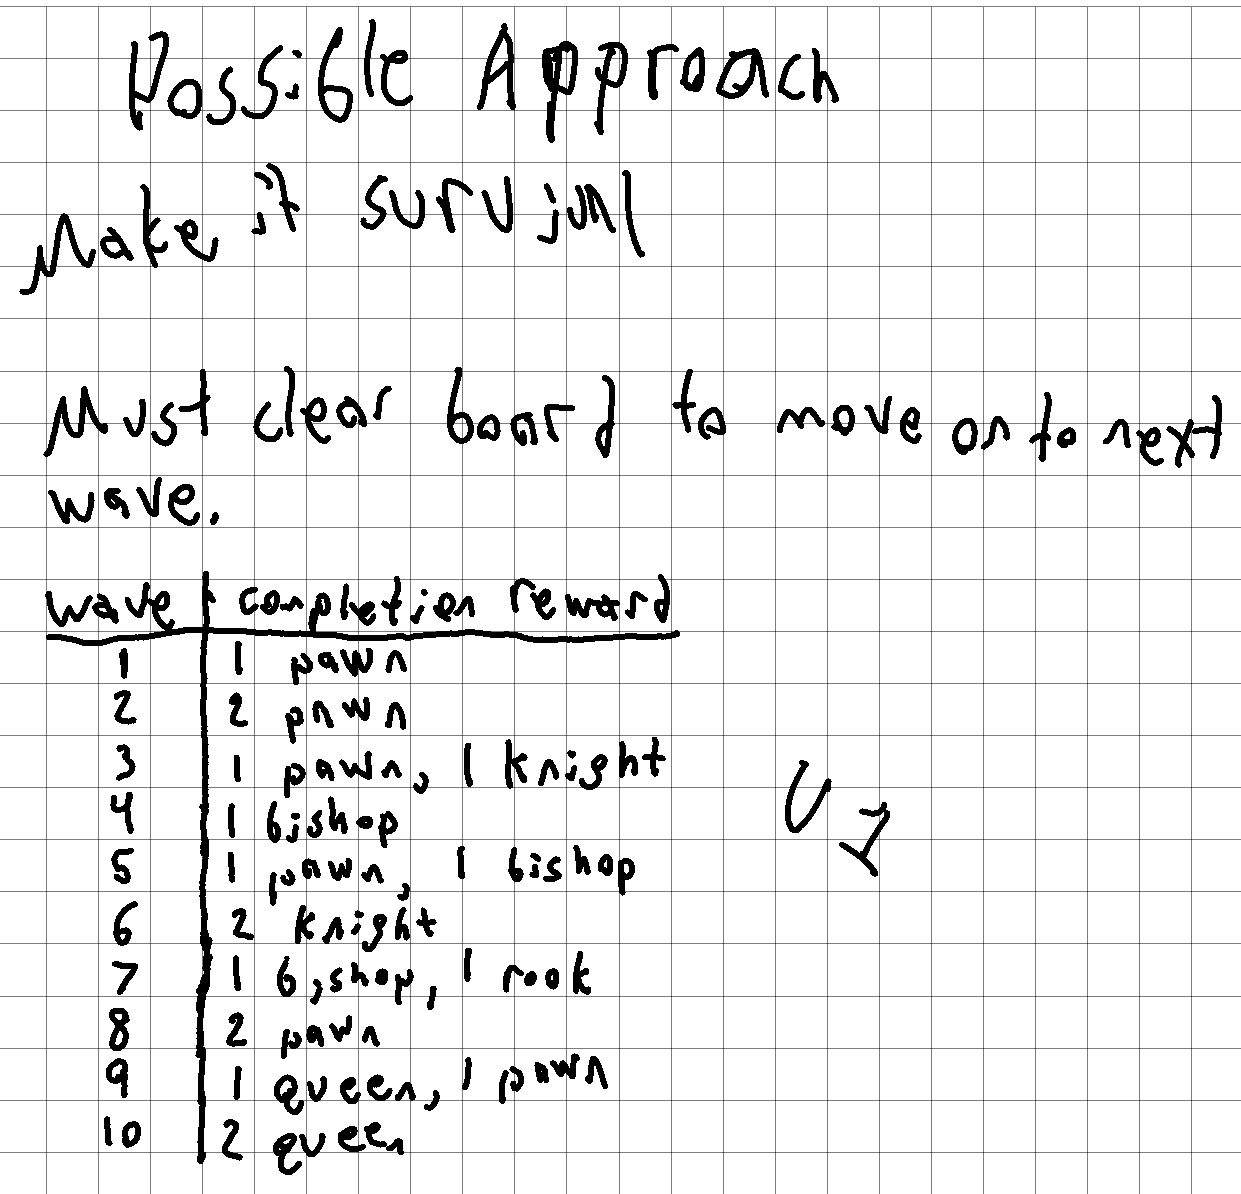 Possible Approach
Make it survival
Must clear board to move on to next
wave.
wave completion reward
1 1 pawn
2 2 pawn
3 1 pawn, 1 knight
4 1 bishop
5 1 pawn, 1 bishop
6 2 knight
7 1 bishop, 1 rook
8 2 pawn
9 1 queen, 1 pawn
10 2 queen